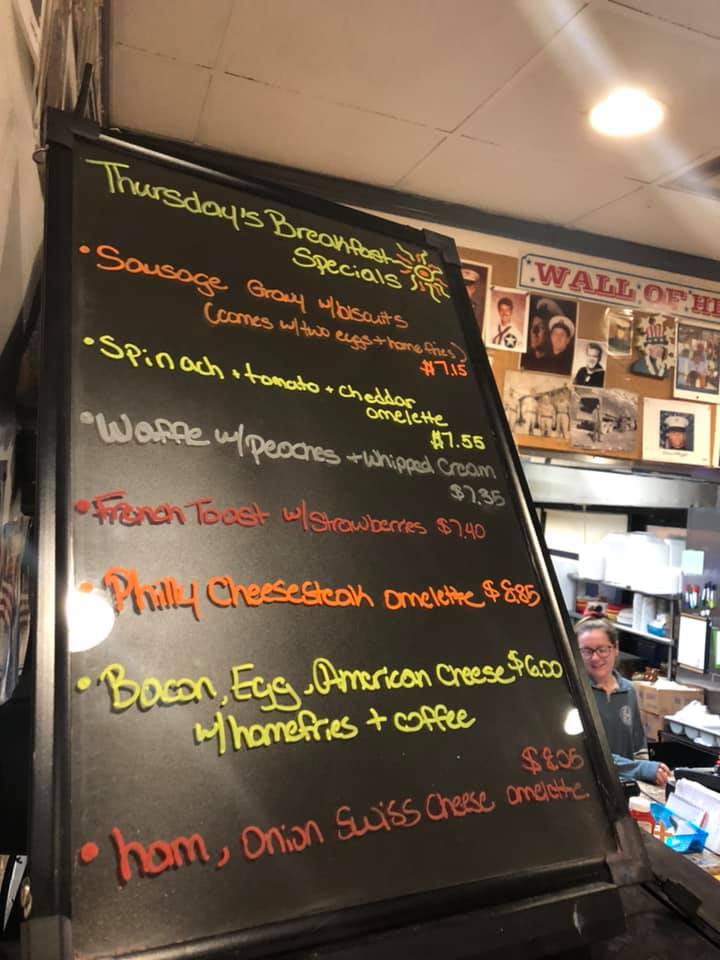 Thursday's Breakfast
Specials
• Sausage Gravy w/biscuits
(comes w/two eggs + home fries)
$7.15
• Spinach + tomato + cheddar
omelette
$7.55
• Waffle w/peaches + Whipped Cream
$7.35
• French Toast w/strawberries $7.40
• Philly Cheesesteak omelette $8.85
• Bacon, Egg, American Cheese $6.00
w/homefries + coffee
$8.05
• ham, onion Swiss Cheese omelette
WALL OF